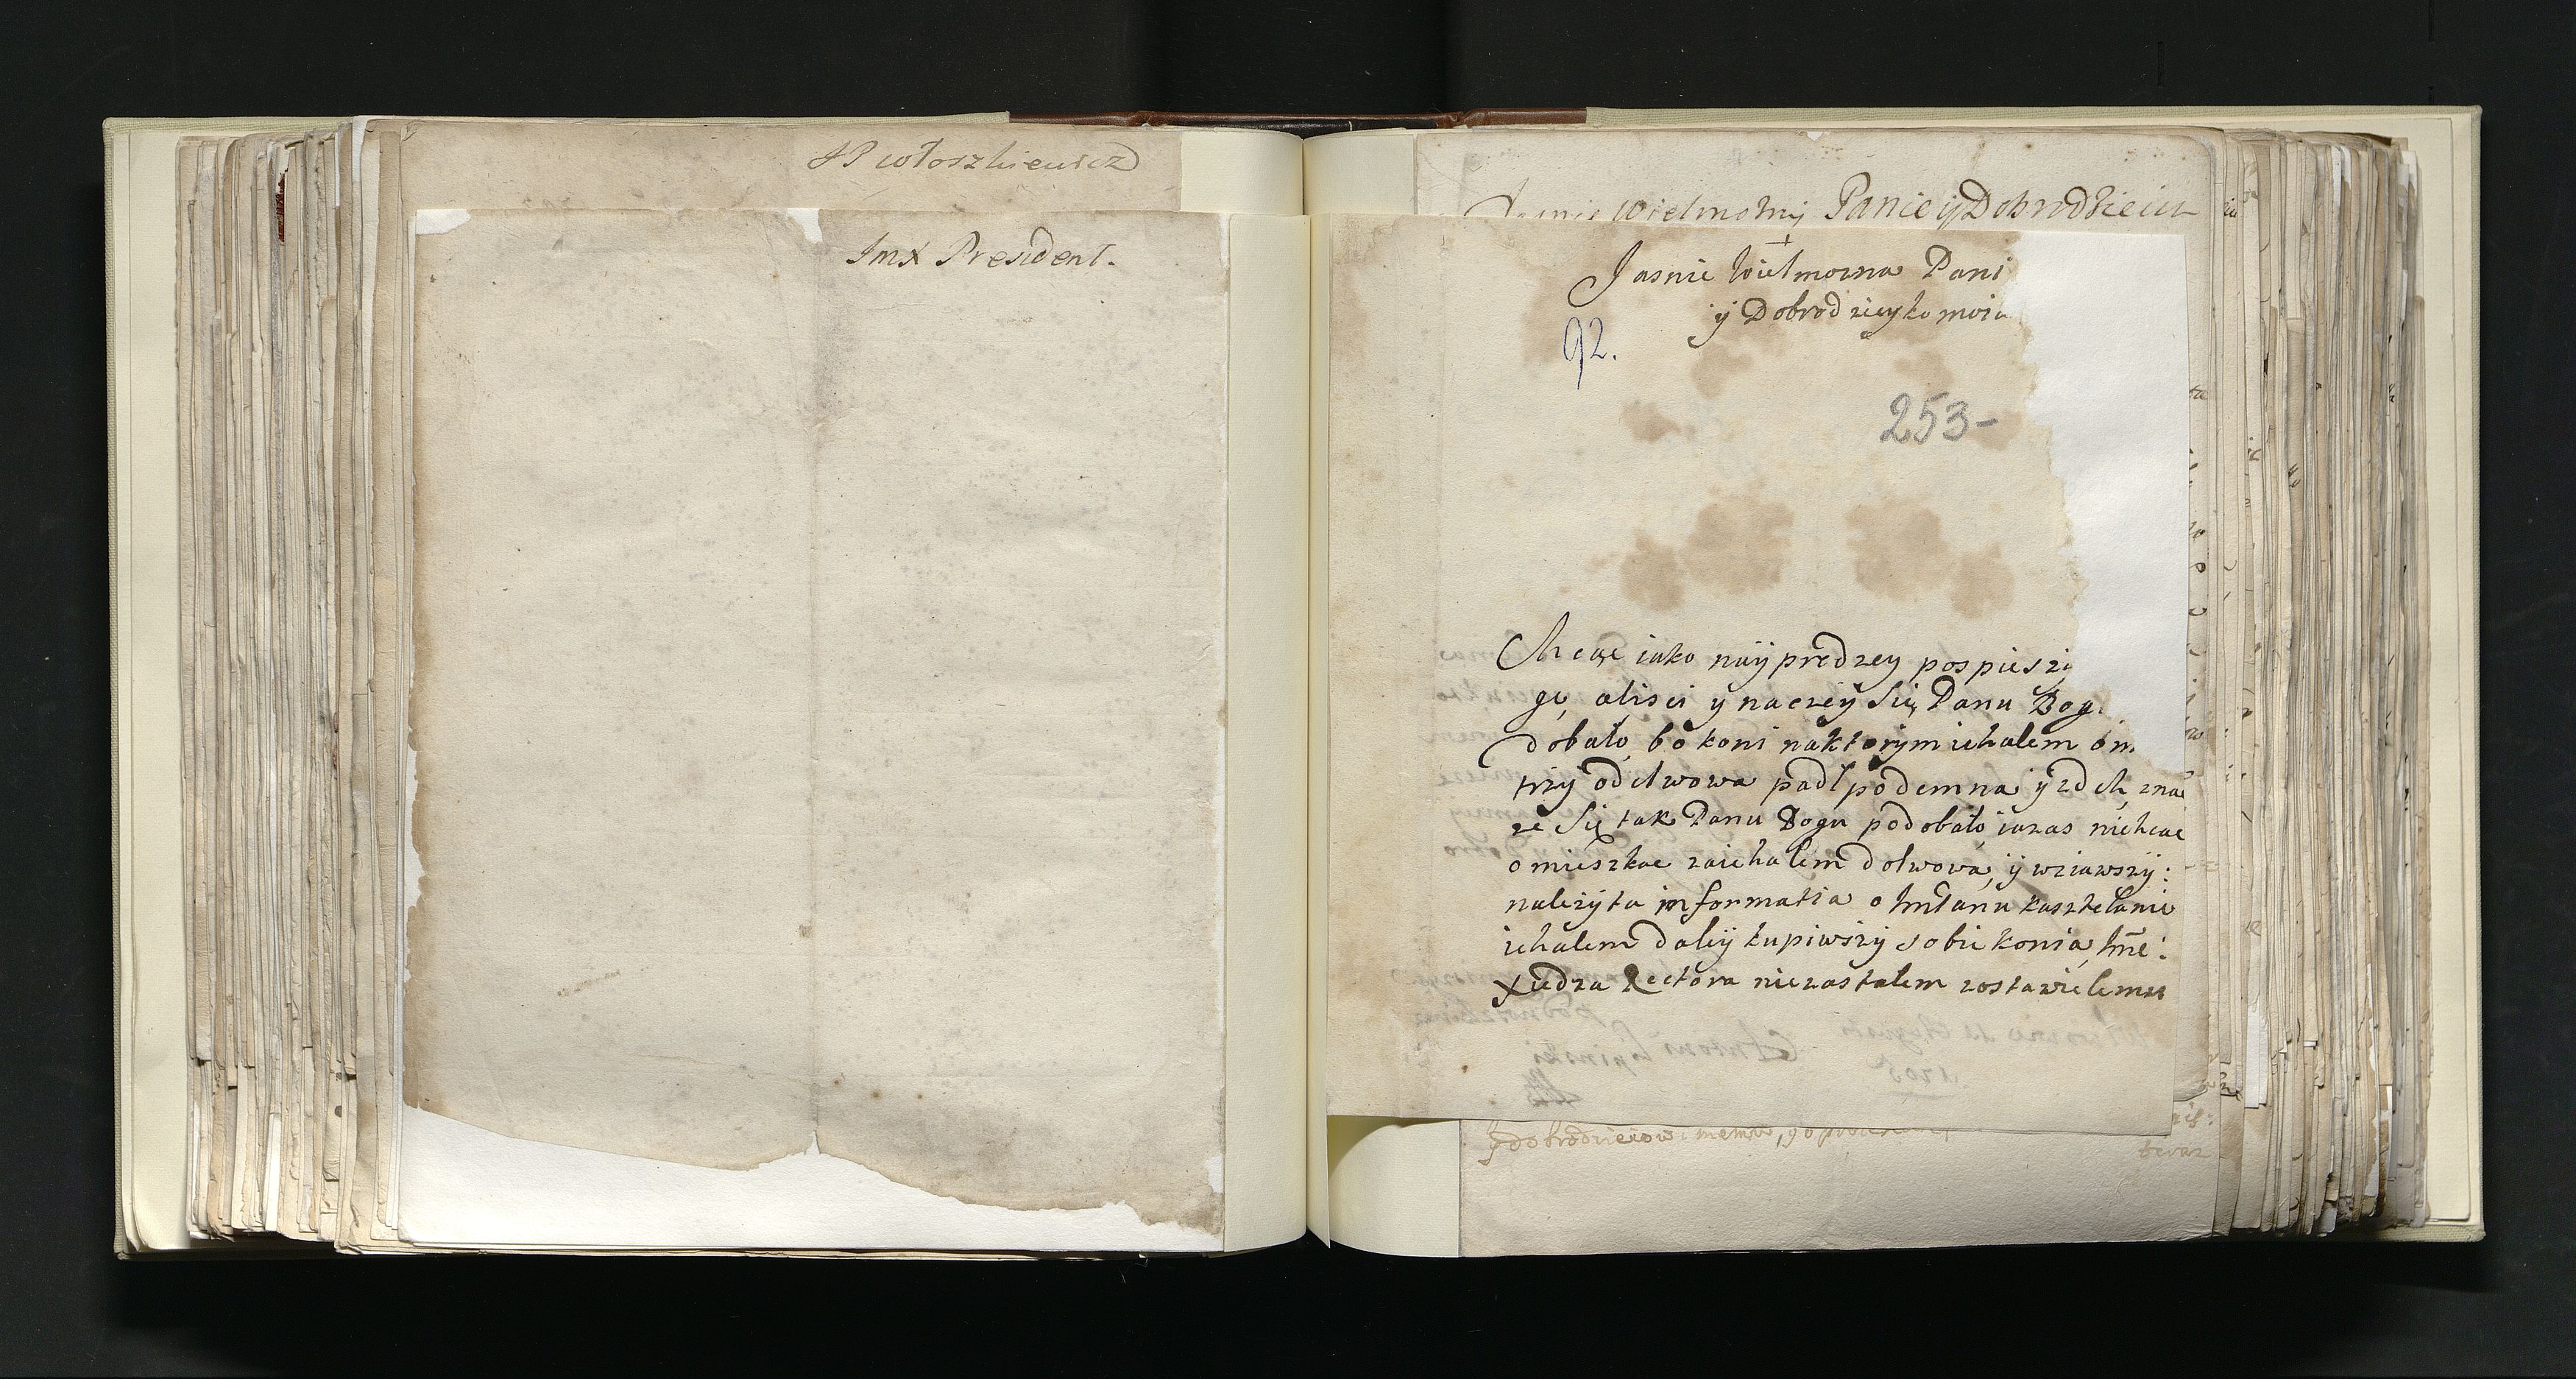 JP Włoszkiewicz
Jmx President.
Wielmożny Panie y Dobrodzieiu
Jasnie Wielmozna Pani
ÿ Dobrodzieyko moia
92.
253-
Chcąc iako naÿprędzey pospieszÿ
gę, alisci ÿ naczeÿ Się Panu Bog
dobało, bo koni naktorÿm iehalem o m
trzÿ odelwowa padl podemna ÿ zdech, zna
ze Się tak Panu Bogu podobało, iazas niehcac
omieszkac zaiehalem dolwowa, ÿ wziawszÿ:
nalezÿta informatia o Jmłanu kasztelanie
iehalem daleÿ kupiwszÿ sobie konia, Jme:
Xiedza Rectora niezastalem zostawilemu
y dobrodzieiowi memu,